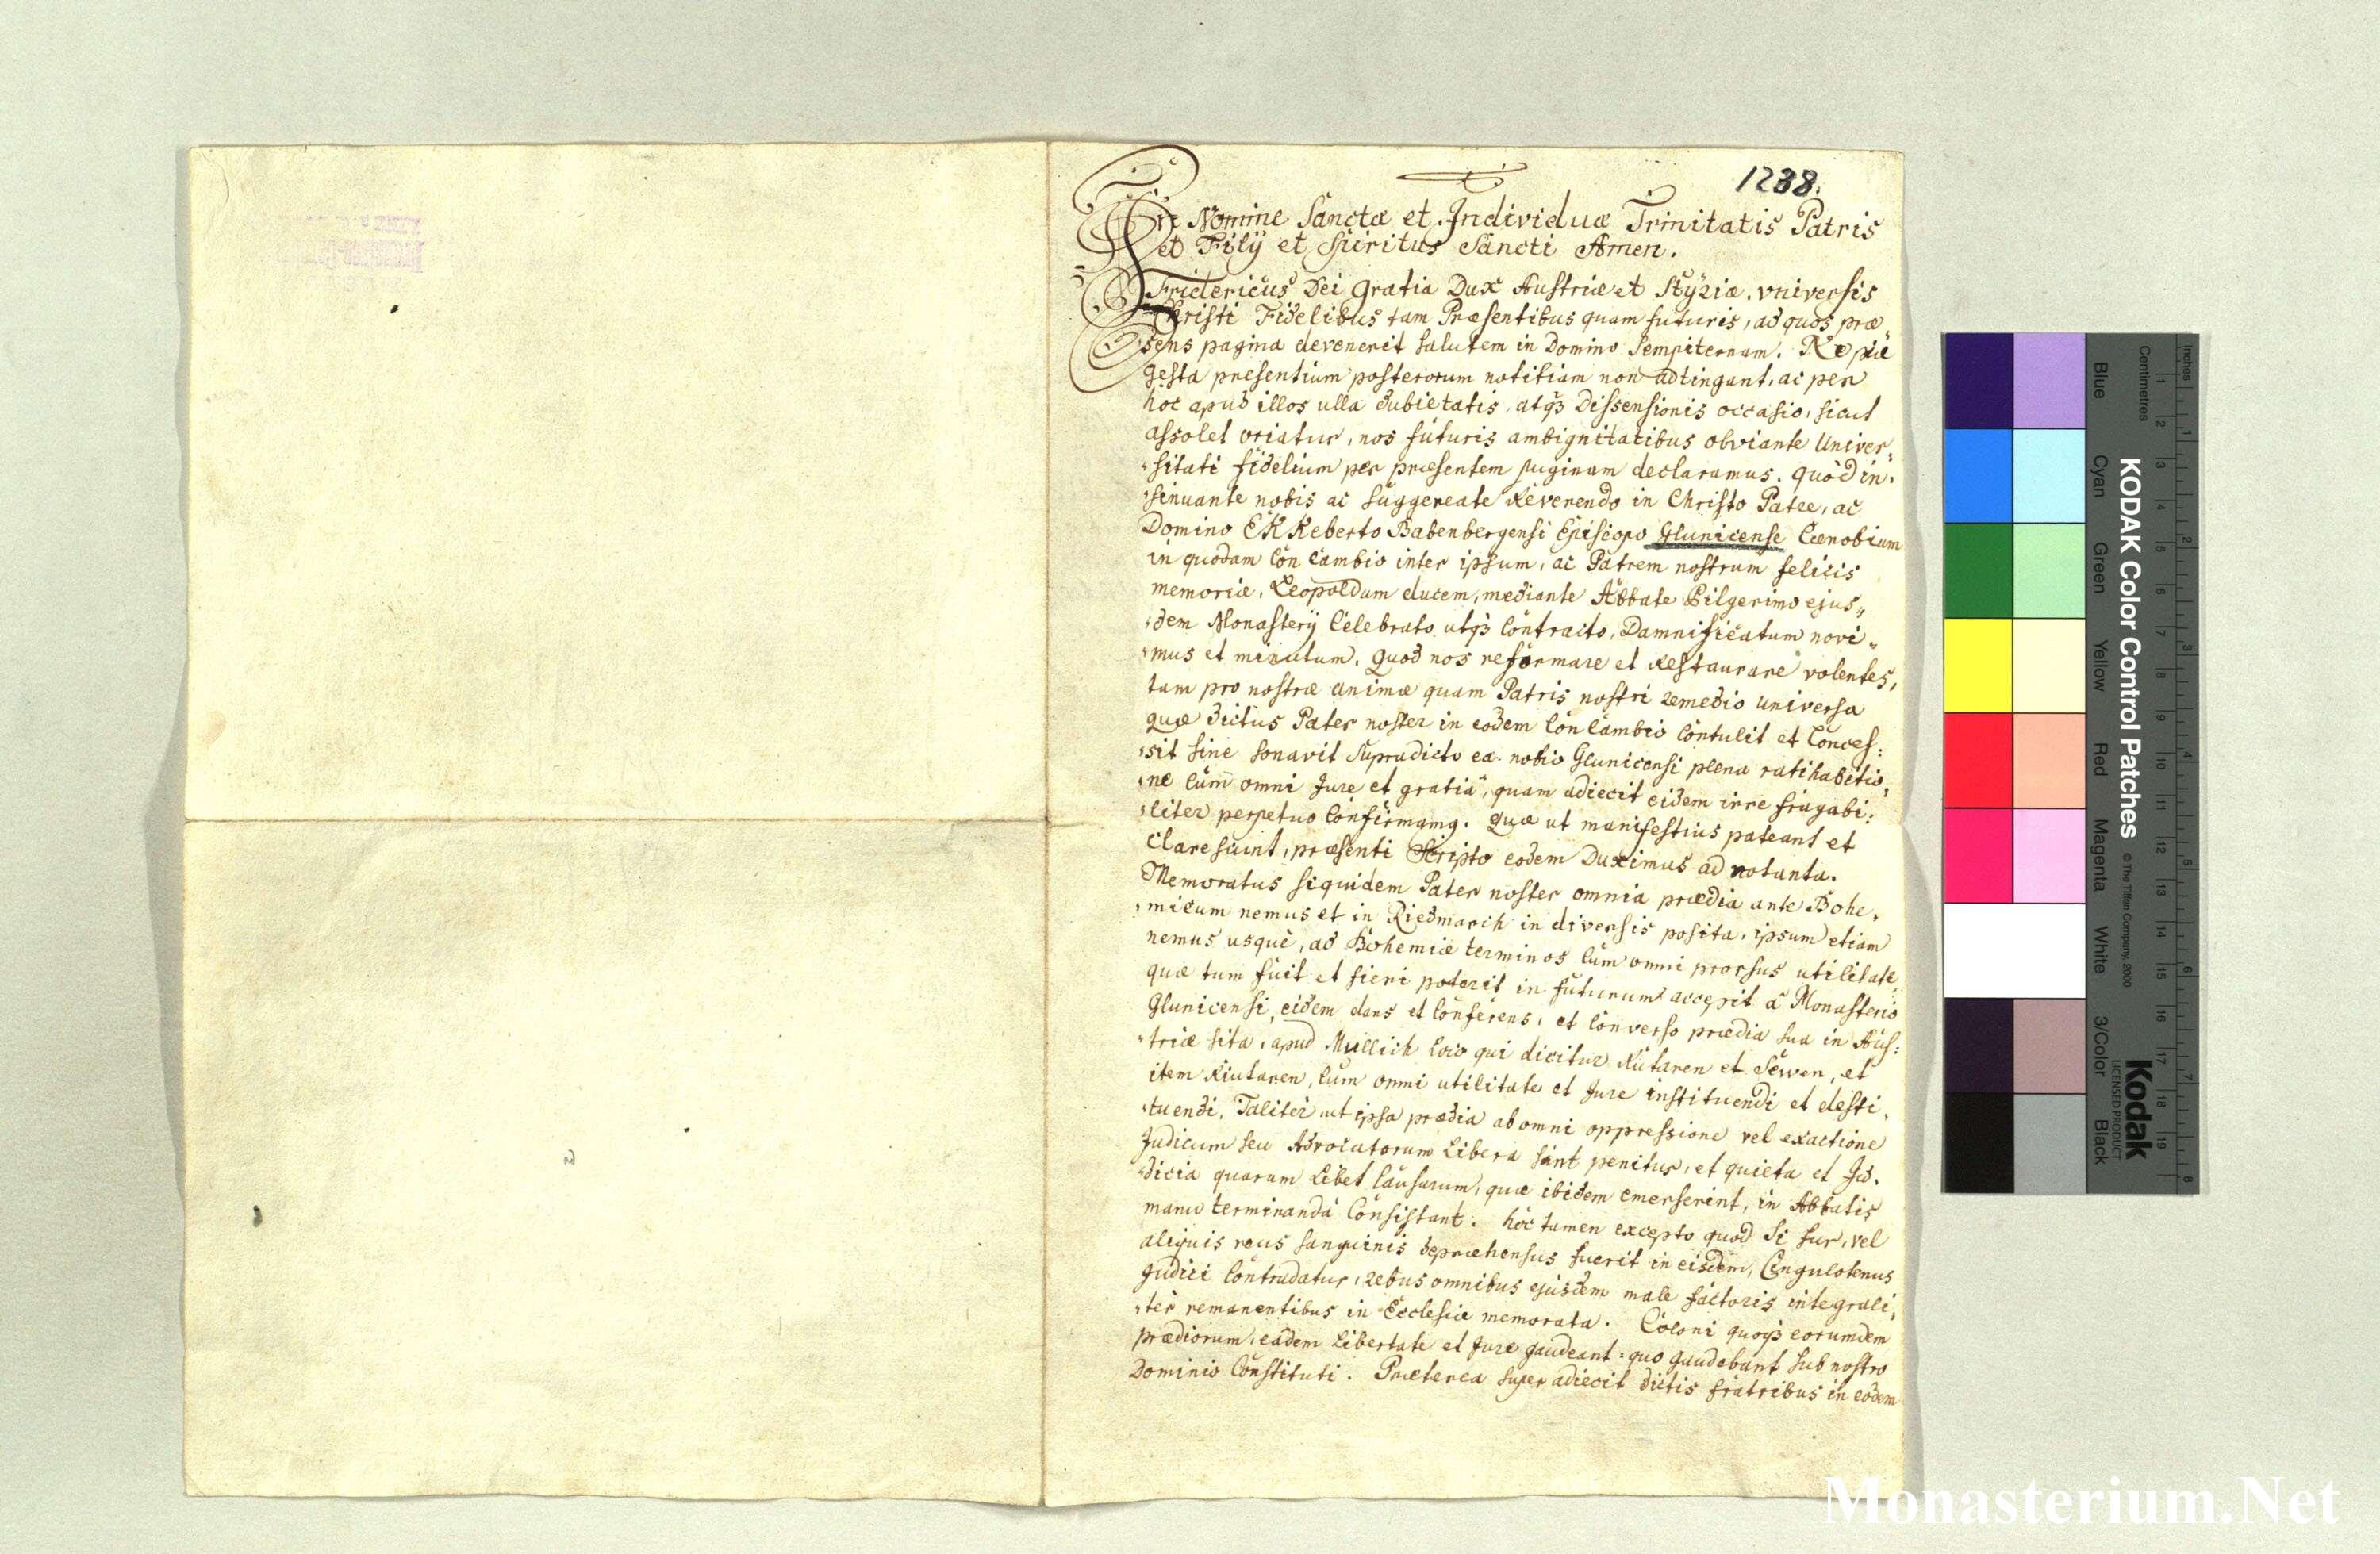 1238.
In Nomine Sanctæ et Individuæ Trinitatis Patris
et Filÿ et Spiritus Sancti Amen.
Fridericus Dei gratia Dux Austriæ et Stÿriæ. vniversis
Christi Fidelibus tam Præsentibus quam futuris, ad quos præ„
sens pagina devenerit salutem in Domino Sempiternam. Ne piæ
gesta presentium posterorum notitiam non adtingant, ac per
hoc apud illos ulla dubietatis, atq3 Dissensionis occasio, sicut
assolet oriatur, nos futuris ambignitatibus obviante Univer„
„sitati fidelium per præsentem paginam declaramus. quòd in„
„sinuante nobis ac suggereate Reverendo in Christo Patre, ac
Domino EKKeberto Babenbergensi Episcopo Glunicense Cænobium
in quodam Con Cambio inter ipsum, ac Patrem nostrum felicis
memoriæ, Leopoldum ducem, mediante Abbate Pilgerimo ejus„
„dem Monasterÿ Celebrato utq3 Contracto, Damnificatum novi„
„mus et minutum. Quod nos reformare et Restaurare volentes,
tam pro nostræ animæ quam Patris nostri remedio universa
quæ dictus Pater noster in eodem Con Cambio Contulit et Conces:
„sit sine sonavit Supradicto ca nobio Glunicensi plena ratihabitio„
„ne Cum omni Jure et gratiâ, quam adiecit eidem irre fragabi:
„liter perpetuo Confirmamq. Quæ ut manifestius pateant et
Claresuint, præsenti Scripto eodem Duximus ad notanta.
Memoratus siquidem Pater noster omnia prædia ante Bohe„
„micum nemus et in Riedmarch in diversis posita, ipsum etiam
nemus usquè, ad Bohemiæ terminos Cum omni prorsus utilitate,
quæ tum fuit et fieri poterit in futurum accepit â Monasterio
Glunicensi, eidem dans et Conferens, et Converso prædia sua in Aus:
„triæ sita, apud Mullich loco qui dicitur Rutaren et Sewen, et
item Riutaren, Cum omni utilitate et Jure instituendi et desti„
„tuendi. Taliter ut ipsa prædia ab omni oppressione vel exactione
Judicum seu Advocatorum Libera sint penitus, et quieta et Ju„
„dicia quarum Libet Causarum, quæ ibidem emerserint, in Abbatis
manu terminanda Consistant. hoc tamen excepto quod Si fur, vel
aliquis reus sanguinis depræhensus fuerit in eisdem, Cingulotenus
Judici Contradatur, rebus omnibus ejusdem male factoris integrali„
„ter remanentibus in Ecclesiæ memorata. Coloni quoq3 eorumdem
prædiorum, eâdem Libertate et Jure gaudeant: quo gaudebant sub nostro
Dominio Constituti. Præterea super adiecit dictis fratribus in eodem
KODAK Color Control Patches
© The Tiffen Company, 2000
Kodak
LICENSED PRODUCT
Inches
Centimetres
1 2 3 4 5 6 7 8 9 10 11 12 13 14 15 16 17 18 19
1 2 3 4 5 6 7 8
Blue Cyan Green Yellow Red Magenta White 3/Color Black
Monasterium.Net